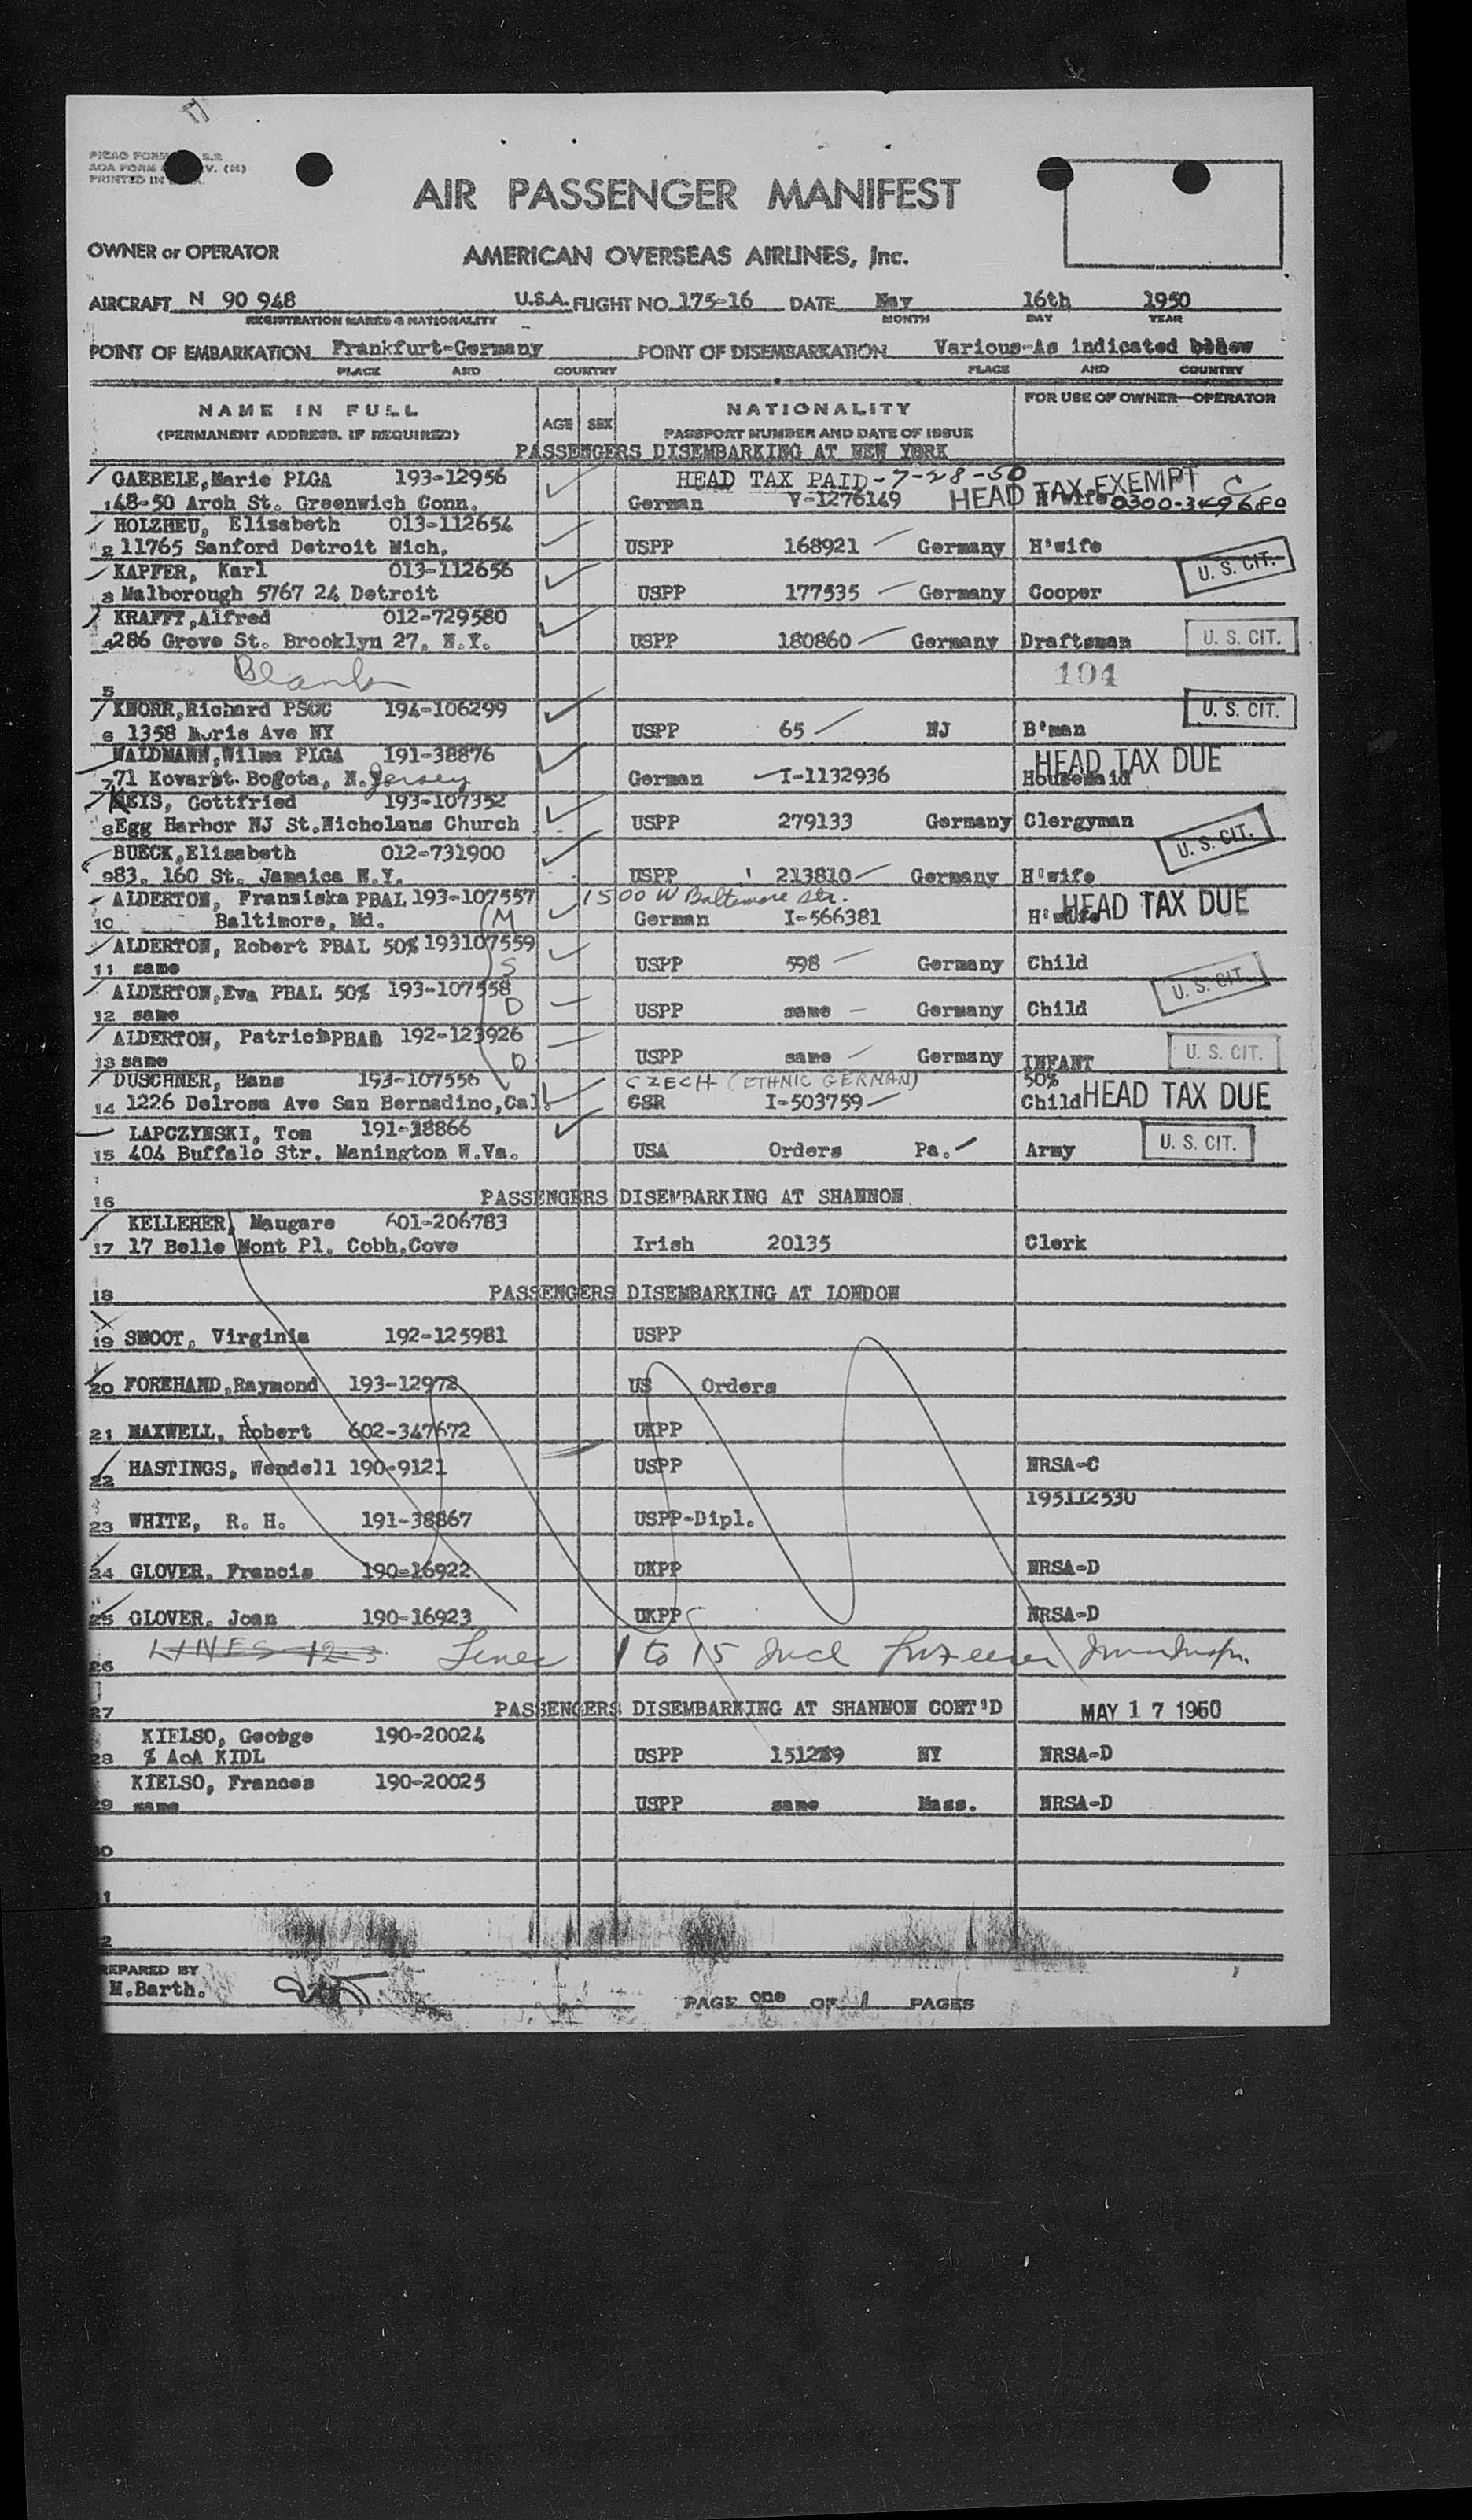 PICAO FORM S.2
AOA FORM V. (M)
PRINTED IN
AIR PASSENGER MANIFEST
OWNER or OPERATOR AMERICAN OVERSEAS AIRLINES, Inc.
AIRCRAFT N 90 948 U.S.A. FLIGHT NO. 175-16 DATE May 16th 1950
REGISTRATION MARKS & NATIONALITY MONTH DAY YEAR
POINT OF EMBARKATION Frankfurt-Germany POINT OF DISEMBARKATION Various-As indicated below
PLACE AND COUNTRY PLACE AND COUNTRY
NAME IN FULL AGE SEX NATIONALITY FOR USE OF OWNER—OPERATOR
(PERMANENT ADDRESS, IF REQUIRED) PASSPORT NUMBER AND DATE OF ISSUE
PASSENGERS DISEMBARKING AT NEW YORK
GAEBELE,Marie PLGA 193-12956 HEAD TAX PAID-7-28-50 HEAD TAX EXEMPT C
1 48-50 Arch St. Greenwich Conn. German V-1276149 H'wife 0300-349680
HOLZHEU, Elisabeth 013-112654
2 11765 Sanford Detroit Mich. USPP 168921 Germany H'wife
KAPFER, Karl 013-112656 U. S. CIT.
3 Malborough 5767 24 Detroit USPP 177535 Germany Cooper
KRAFFT,Alfred 012-729580
4 286 Grove St. Brooklyn 27, N.Y. USPP 180860 Germany Draftsman U. S. CIT.
Blank 104
5
KNORR,Richard PSOC 194-106299 U. S. CIT.
6 1358 Moris Ave NY USPP 65 NJ B'man
WALDMANN,Wilma PLGA 191-38876 HEAD TAX DUE
7 71 Kovarst. Bogota, N.Jersey German I-1132936 Housemaid
NEIS, Gottfried 193-107352
8 Egg Harbor NJ St.Nicholaus Church USPP 279133 Germany Clergyman
BUECK,Elisabeth 012-731900 U. S. CIT.
9 83. 160 St. Jamaica N.Y. USPP 213810 Germany H'wife
ALDERTON, Fransiska PBAL 193-107557 1500 W Baltimore Str. HEAD TAX DUE
10 Baltimore, Md. M German I-566381 H'wife
ALDERTON, Robert PBAL 50% 193107559
11 same S USPP 598 Germany Child
ALDERTON,Eva PBAL 50% 193-107558 U. S. CIT.
12 same D USPP same Germany Child
ALDERTON, Patrici PBAL 192-123926
13 same D USPP same Germany INFANT U. S. CIT.
DUSCHNER, Hans 193-107556 CZECH (ETHNIC GERMAN) 50%
14 1226 Delrosa Ave San Bernadino,Cal. CSR I-503759 Child HEAD TAX DUE
LAPCZYNSKI, Tom 191-38866
15 404 Buffalo Str. Manington W.Va. USA Orders Pa. Army U. S. CIT.
16 PASSENGERS DISEMBARKING AT SHANNON
KELLEHER, Maugare 601-206783
17 17 Belle Mont Pl. Cobh,Cove Irish 20135 Clerk
18 PASSENGERS DISEMBARKING AT LONDON
19 SMOOT, Virginia 192-125981 USPP
20 FOREHAND,Raymond 193-12972 US Orders
21 MAXWELL, Robert 602-347672 UKPP
22 HASTINGS, Wendell 190-9121 USPP NRSA-C
195112530
23 WHITE, R. H. 191-38867 USPP-Dipl.
24 GLOVER, Francis 190-16922 UKPP NRSA-D
25 GLOVER, Joan 190-16923 UKPP NRSA-D
LINES 12-3 Lines 1 to 15 Incl
26
27 PASSENGERS DISEMBARKING AT SHANNON CONT'D MAY 17 1950
KIELSO, George 190-20024
28 % AOA KIDL USPP 151289 NY NRSA-D
KIELSO, Frances 190-20025
29 same USPP same Mass. NRSA-D
PREPARED BY
M.Barth.
PAGE one OF 1 PAGES